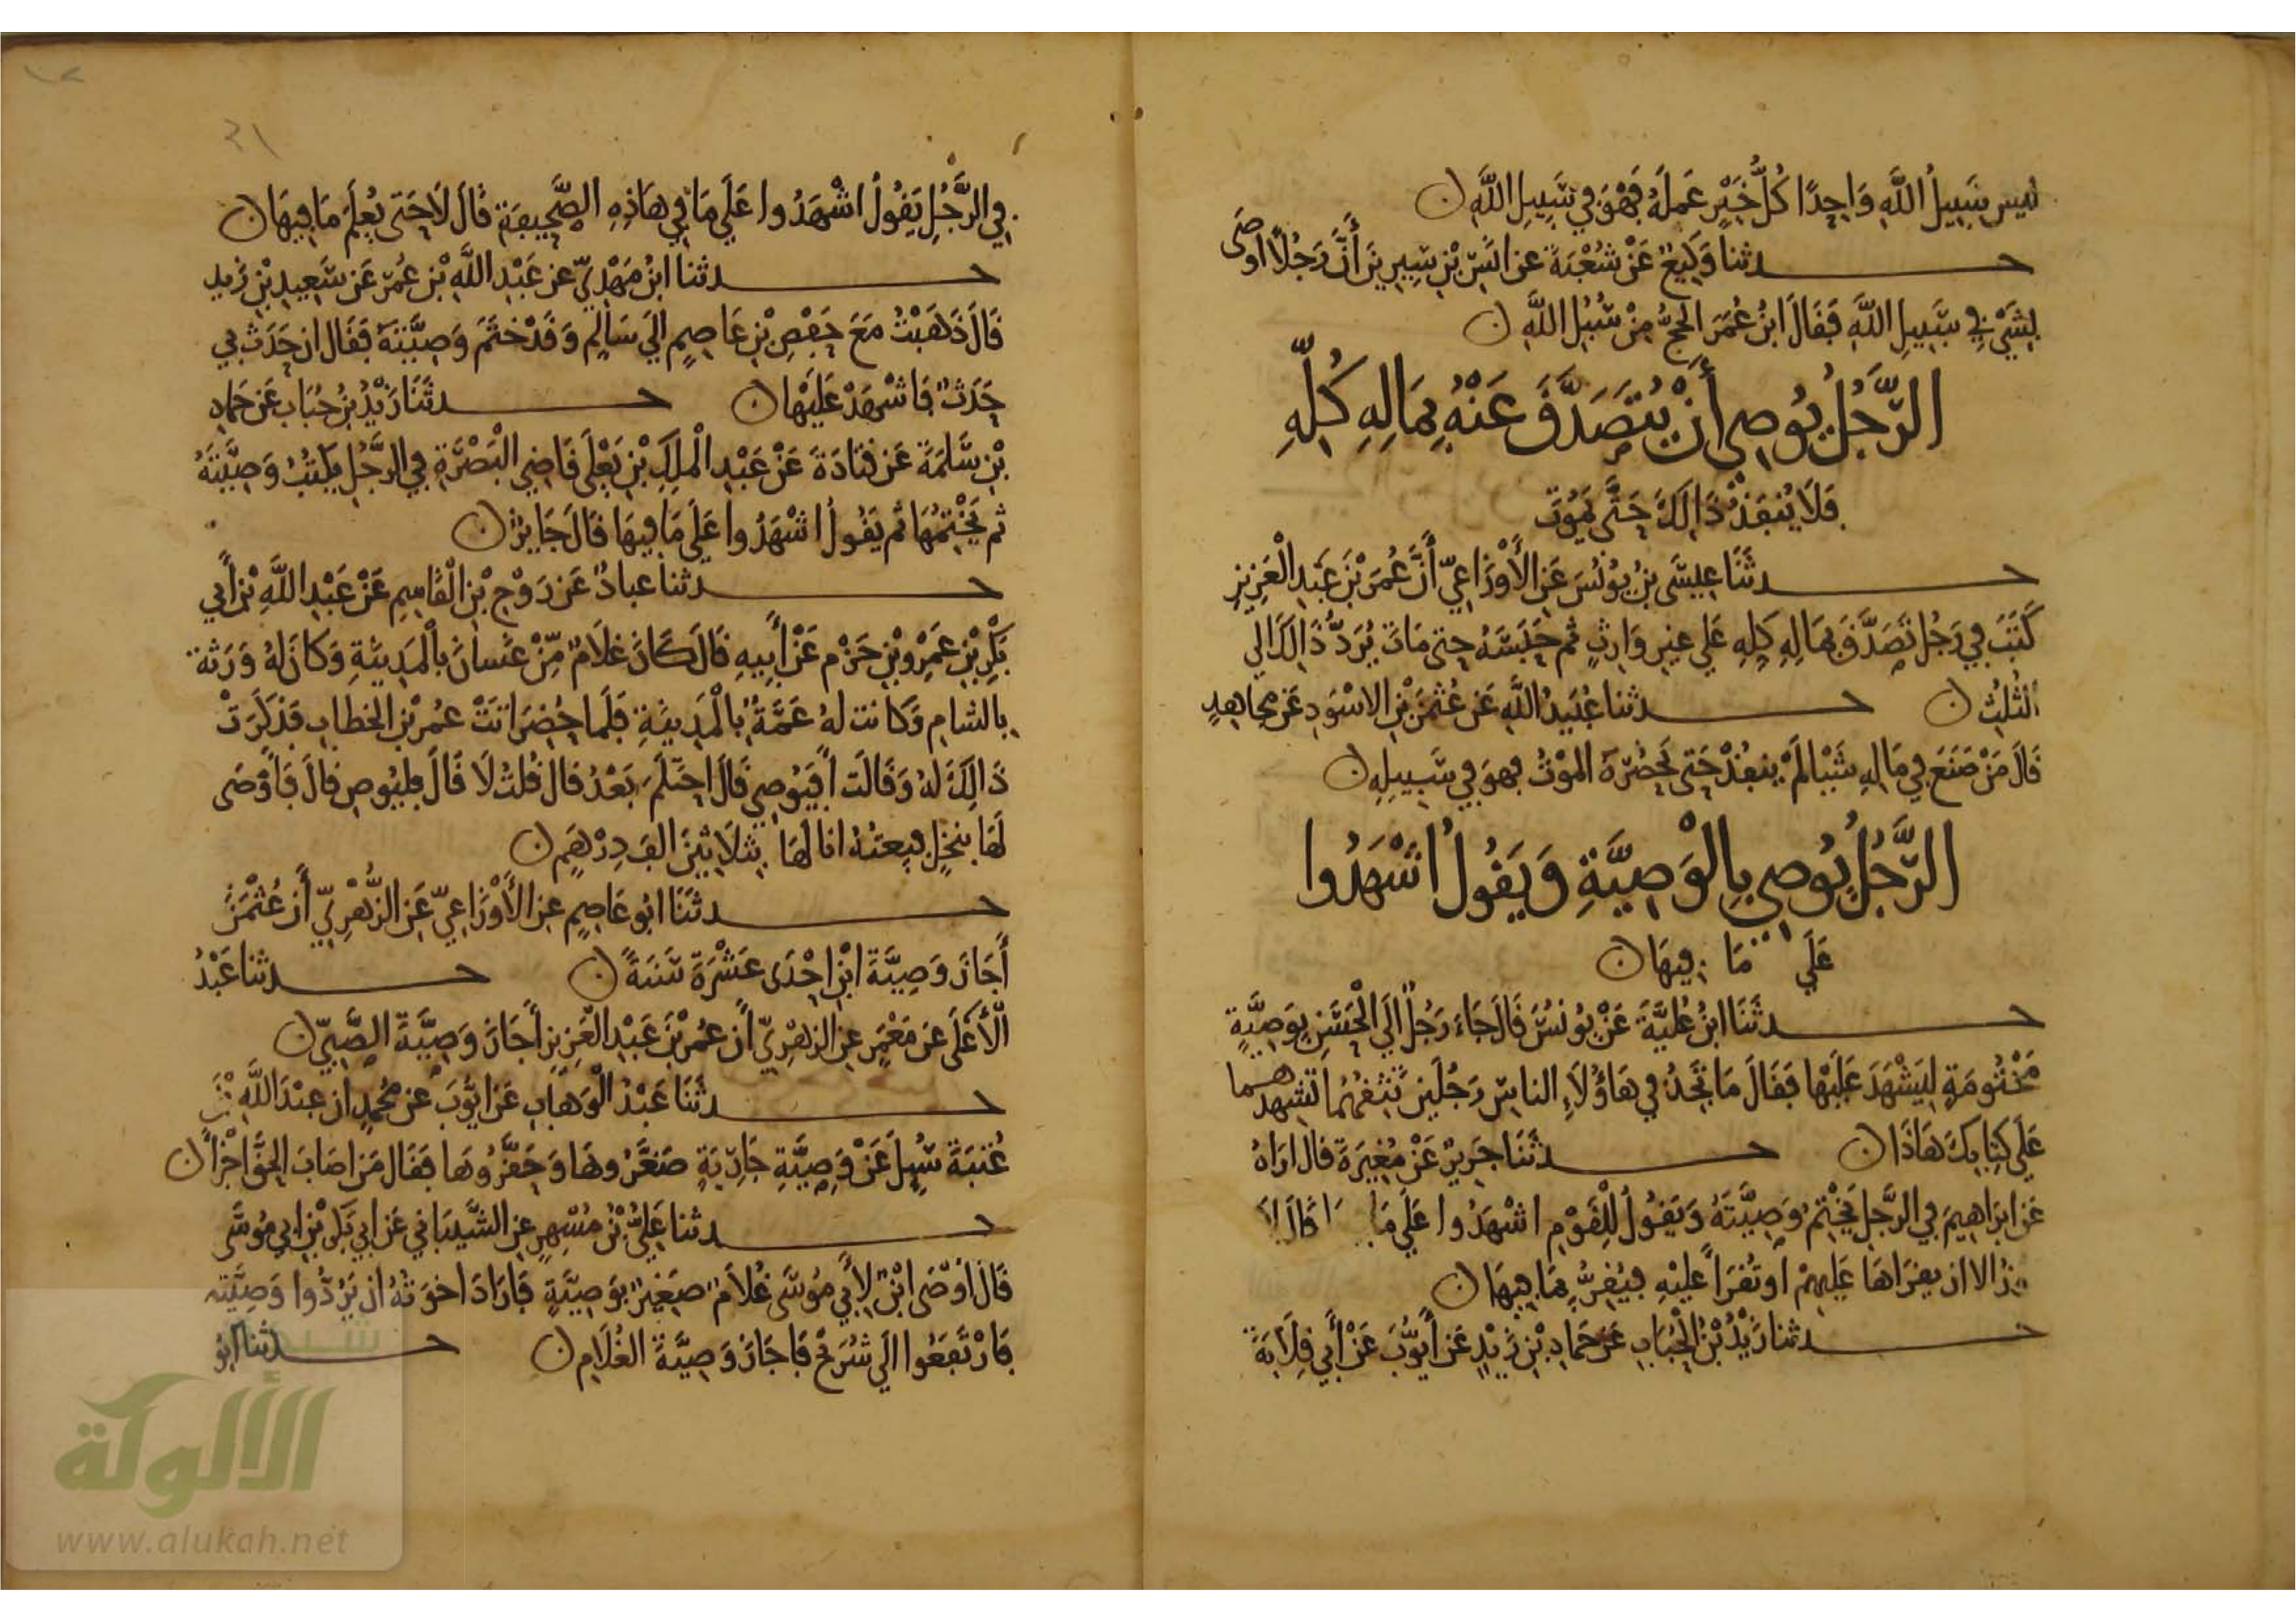 ليس سَبِيلُ اللَّهِ وَاحِدًا كُلُّ خَيْرٍ عَمِلَهُ فَهْوَ فِي سَبِيلِ اللَّهِ ن
حدثنا وَكِيعٌ عَنْ شُعْبَةَ عن انَسِ بْنِ سِيرِينَ أَنَّ رَجُلًا اوصَى
بِشَيْءٍ فِي سَبِيلِ اللَّهِ فَقَالَ ابنُ عُمَرَ الحجُّ مِنْ سُبُلِ اللَّهِ ن
الرَّجُلُ يُوصِي أَنْ يُتَصَدَّقَ عَنْهُ بِمَالِهِ كُلِّهِ
فَلَا يُنفَذْ ذَالِكَ حَتَّى يَمُوتَ
حدثَنَا عِيسَى بنُ يُونُسَ عَنِ الأَوْزَاعِيِّ أَنَّ عُمَرَ بْنَ عَبْدِ الْعَزِيزِ
كَتَبَ فِي رَجُلٍ تَصَدَّقَ بِمَالِهِ كُلِهِ عَلي غيرِ وَارِثٍ ثم حَبَسَهُ حتى مَاتَ يُرَدُّ ذَالِكَ الي
الثُلُثِ ن حدثنا عُبَيدُ اللَّهِ عَن عُثْمَنَ بْنِ الاسْوَدِ عَن مجاهدٍ
قَالَ مَنْ صَنَعَ فِي مَالِهِ شَيْيا لَمْ ينفُذْ حَتى تَحْضُرَهُ الموْتُ فهوَ فِي سَبِيلِهِ ن
الرَّجُلُ يُوصِي بِالْوَصِيَّةِ وَيَقُولُ اشْهَدُوا
عَلَي مَا فِيهَا ن
حدثَنَا ابنُ عُلَيَّةَ عَنْ يُونُسَ قَالَ جَاءَ رَجُلٌ الَي الْحَسَنِ بِوَصِيَّةٍ
مَخْتُومَةٍ لِيَشْهَدَ عَلَيْهَا فَقَالَ مَا تَجِدُ فِي هَاؤُلَاءِ الناسِ رَجُلَين تَثِقُهُمَا تشهدهما
عَلَي كِتَابِكَ هَاذَا ن حدثَنَا جَرِيرٌ عَنْ مُغِيرَةَ قال ارَاهُ
عَن ابرَاهِيمَ فِي الرَّجلِ يَخْتِمُ وَصِيَّتَهُ وَيَقُولُ لِلْقَوْمِ اشْهَدُوا عَلَي مَا قَالَ لَا
الا ان يقرَاهَا عَلَيهِمْ اوتُقرَأَ عَلَيْهِ فيُقِرُّ بِمَا فِيهَا ن
حدثنا زَيْدُ بْنُ الْحُبَابِ عَن حَمادِ بْنِ زَيْدٍ عَن أَيُّوبَ عَنْ أَبِي قِلَابَةَ
فِي الرَّجُلِ يَقُولُ اشْهَدُوا عَلَي مَا فِي هَاذِهِ الصَّحِيفَةِ قَالَ لَا حَتى يُعْلَمَ مَا فِيهَا ن
حدثنا ابنُ مَهْدِيٍّ عن عَبْدِ اللَّهِ بْنِ عُمَرَ عَن سَعِيدِ بْنِ زَيدٍ
قَالَ ذَهَبْتُ مَعَ حَفْصِ بْنِ عَاصِمٍ الَي سَالِمٍ وَقَدْ خَتَمَ وَصِيَّتَهُ فَقَال ان حَدَثَ بِي
حَدَثٌ فَاشْهَدْ عَلَيْهَا ن حدثَنَا زَيْدُ بنُ حُبَابٍ عَن حَمادِ
بْنِ سَلَمَةَ عَن قتَادَةَ عَنْ عَبْدِ الْمَلِكِ بْنِ يَعْلَى قَاضِي الْبَصْرَةِ فِي الرَّجُلِ يَكتُبُ وَصِيَّتَهُ
ثم يَخْتِمُهَا ثم يَقُولُ اشْهَدُوا عَلَى مَا فِيهَا قَالَ جَايزٌ ن
حدثنا عبادٌ عَن رَوْحِ بْنِ الْقَاسِمِ عَنْ عَبْدِ اللَّهِ بْنِ أَبِي
بَكْرِ بْنِ عَمْرِو بْنِ حَزْمٍ عَنْ أَبِيهِ قَالَ كَانَ غلَامٌ مِنْ غَسانَ بِالْمَدِينَةِ وَكَانَ لَهُ وَرَثَة
بِالشامِ وَكَانت لهُ عَمَّةٌ بِالْمَدِينَةِ فَلَما حُضِرَ اتَتْ عُمَرَ بْنَ الخَطابِ فَذكَرَتْ
ذَالِكَ لَهُ وَقَالَت أَفَيُوصِي قَالَ احتَلَمَ بَعْدُ قَالَ قُلتُ لَا قَالَ فليُوصِ قَالَ فَأَوْصَى
لَهَا بنَخْلٍ فبِعتُهُ انا لَهَا بِثَلَاثِينَ الفَ دِرْهَمٍ ن
حدثَنَا ابُو عَاصِمٍ عن الأَوْزَاعِيِّ عَنِ الزُّهْرِيِّ أَن عُثْمَنَ
أَجَازَ وَصِيَّةَ ابْنِ احْدَى عَشْرَةَ سَنَةً ن حدثنا عَبْدُ
الْأَعْلَى عَن مَعْمَرٍ عنِ الزهْرِيِّ أَن عُمرَ بْنَ عَبْدِ الْعَزِيزِ أَجَازَ وَصِيَّةَ الصَّبِيِّ ن
حدثَنَا عَبْدُ الْوَهابِ عَن ايُّوبَ عن محُمدٍ ان عبْدَ اللَّهِ بْنَ
عُتبَةَ سُيِلَ عَنْ وَصِيَّةِ جَارِيَةٍ صَغَّرُوهَا وَحَقَّرُوهَا فَقَال مَن اصَابَ الحَقَّ أَجْزَأَ ن
حدثنا عَلِيُّ بْنُ مُسْهِرٍ عن الشَّيْبَانِي عَن ابِي بَكْرِ بْنِ ابِي مُوسَى
قَالَ اوْصَى ابْنٌ لِأَبِي مُوسَى غُلَامٌ صَغِيرٌ بِوَصِيَّةٍ فَارَادَ اخوَتُهُ ان يَرُدُّوا وَصِيَّتَهُ
فَارْتَفَعُوا الَي شُرَيْحٍ فَاجَازَ وَصِيَّةَ الغُلَامِ ن حدثنا ابُو
شبكة
الألوكة
www.alukah.net